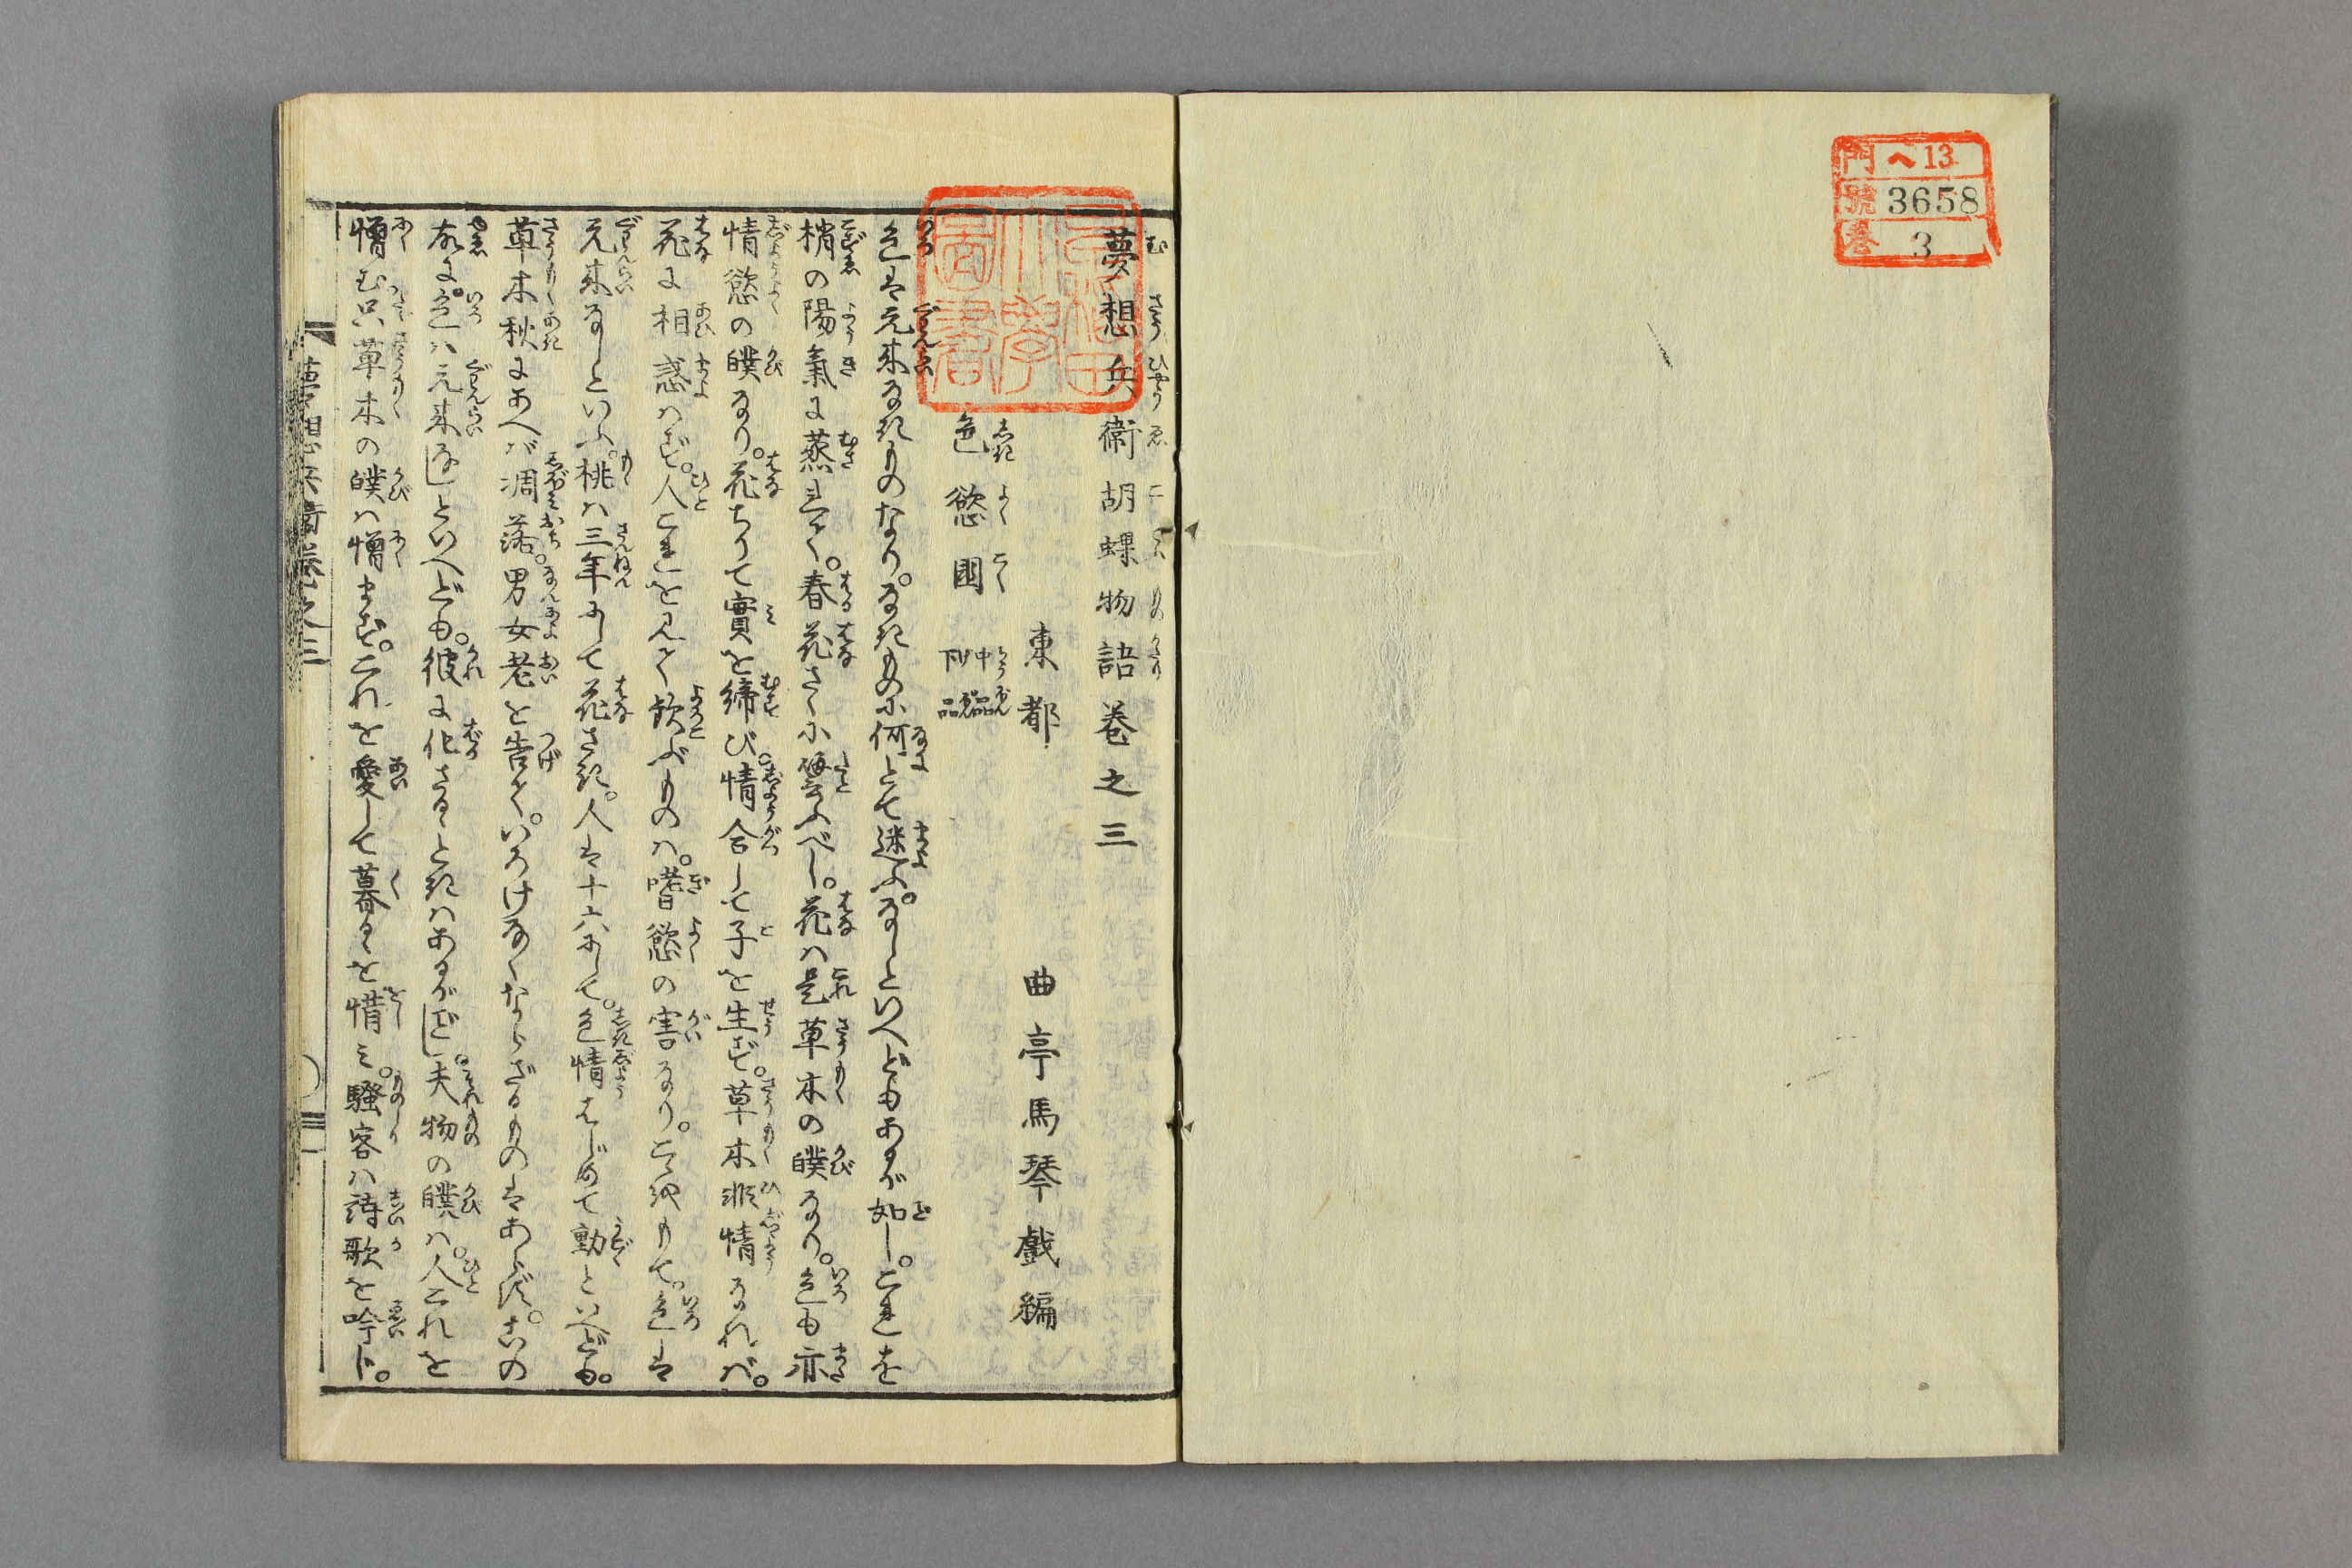 門 ヘ 13
號 3658
巻 3
早稲田大學圖書
夢想兵衛胡蝶物語巻之三
東都 曲亭馬琴戯編
色慾國 中品 下品
色は元来なきものなり。なきものに何とて迷ふ。なしといへどもあるが如し。これを
梢の陽氣に蒸れて。春花さくに譬ふべし。花ハ是草木の皣なり。色も亦
情慾の皣なり。花ちりて實を締び。情合して子を生ず。草木非情なれバ。
花に相惑ハず。人これを見て歓ぶものハ。嗜慾の害なり。こゝをもて。色は
元来なしといふ。桃ハ三年にして花さき。人は十六にして。色情はじめて動といへども。
草木秋にあへバ凋落。男女老を告て。いろけなくならざるものはあらず。この
故に。色ハ元来なしといへども。彼に化さるゝときハあるがごとし。夫物の皣ハ。人これを
憎む只草木の皣ハ憎まず。これを愛して暮るゝを惜ミ。騒客ハ詩歌を吟ト。
夢想兵衛巻之三 一